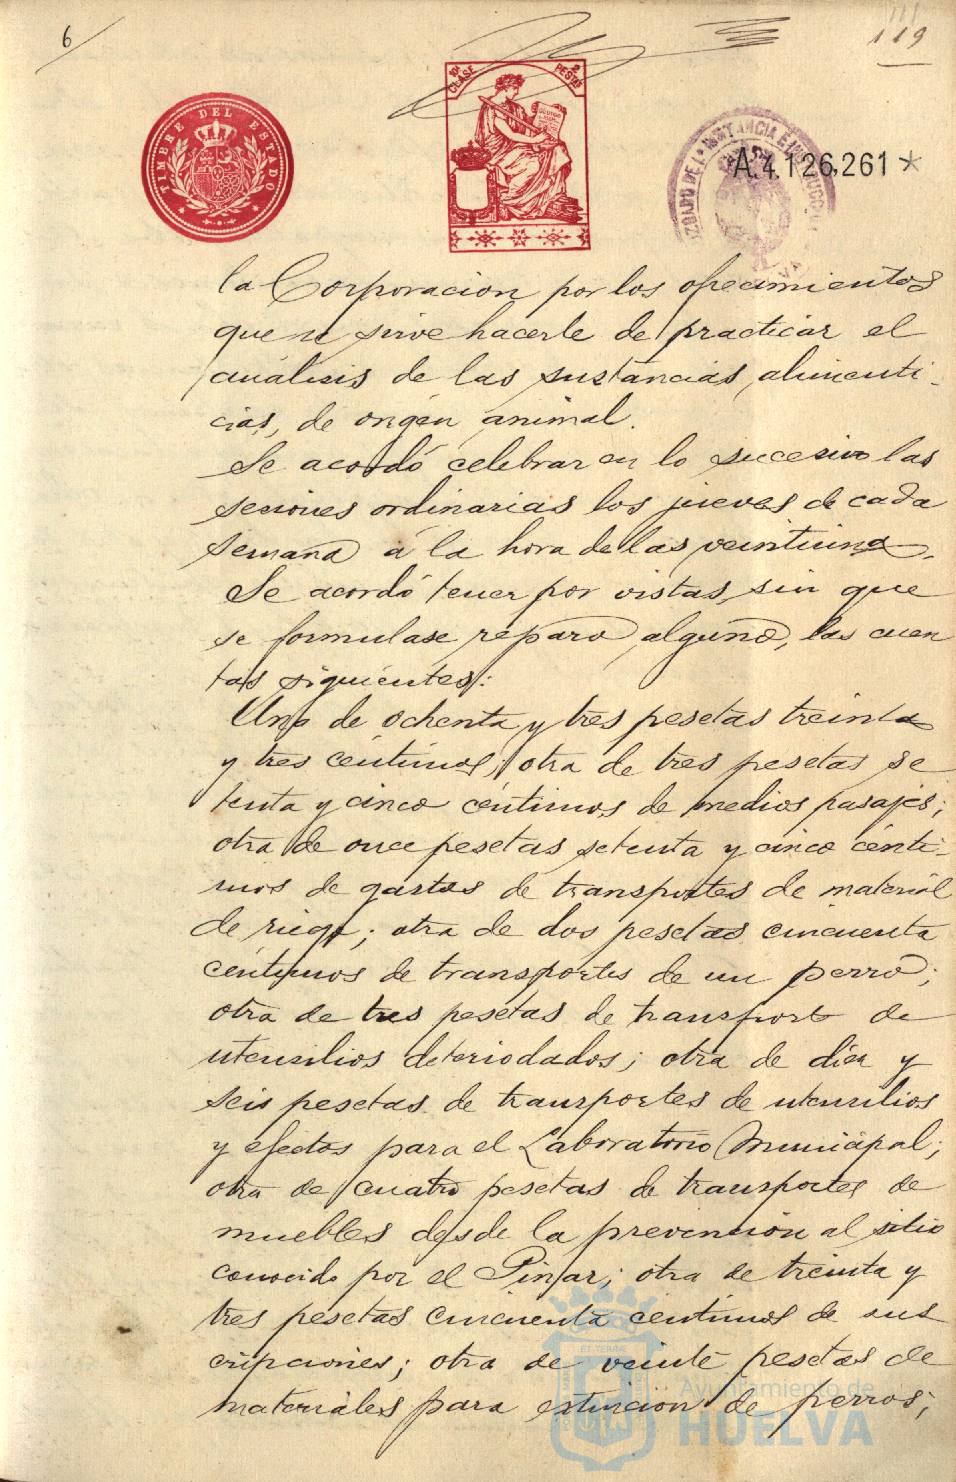 6
111
119
TIMBRE DEL ESTADO
10ª CLASE
2 PESTAS
JUZGADO DE 1ª INSTANCIA E INSTRUCCION
A.4.126,261*
la Corporacion por los ofrecimientos
que se sirve hacerle de practicar el
análisis de las sustancias alimenti-
cias, de origen animal.
Se acordó celebrar en lo sucesivo las
sesiones ordinarias los jueves de cada
semana á la hora de las veintiuna.
Se acordó tener por vistas, sin que
se formulase reparo alguno, las cuen
tas siguientes:
Una de ochenta y tres pesetas treinta
y tres céntimos; otra de tres pesetas se
tenta y cinco céntimos de medios pasajes;
otra de once pesetas setenta y cinco cénti-
mos de gastos de transportes de material
de riego; otra de dos pesetas cincuenta
céntimos de transportes de un perro;
otra de tres pesetas de transporte de
utensilios deteriodados; otra de diez y
seis pesetas de transportes de utensilios
y efectos para el Laboratorio Municipal;
otra de cuatro pesetas de transportes de
muebles desde la prevención al sitio
conocido por el Pinar; otra de treinta y
tres pesetas cincuenta centimos de sus
cripciones; otra de veinte pesetas de
materiales para extincion de perros;
Ayuntamiento de
HUELVA